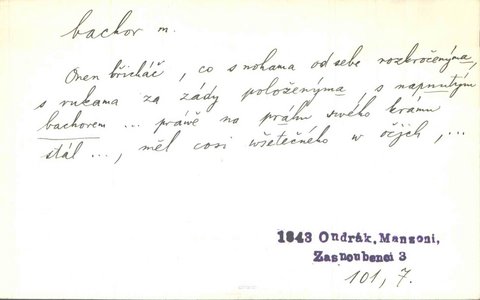 bachor m.
Onen břicháč, co s nohama od sebe rozkročenýma,
s rukama za zády položenýma, s napnutým
bachorem ... práwě na práhu swého krámu
stál ..., měl cosi wšetečného w očjch, ...
1843 Ondrák, Manzoni,
Zasnoubenci 3
101, 7.